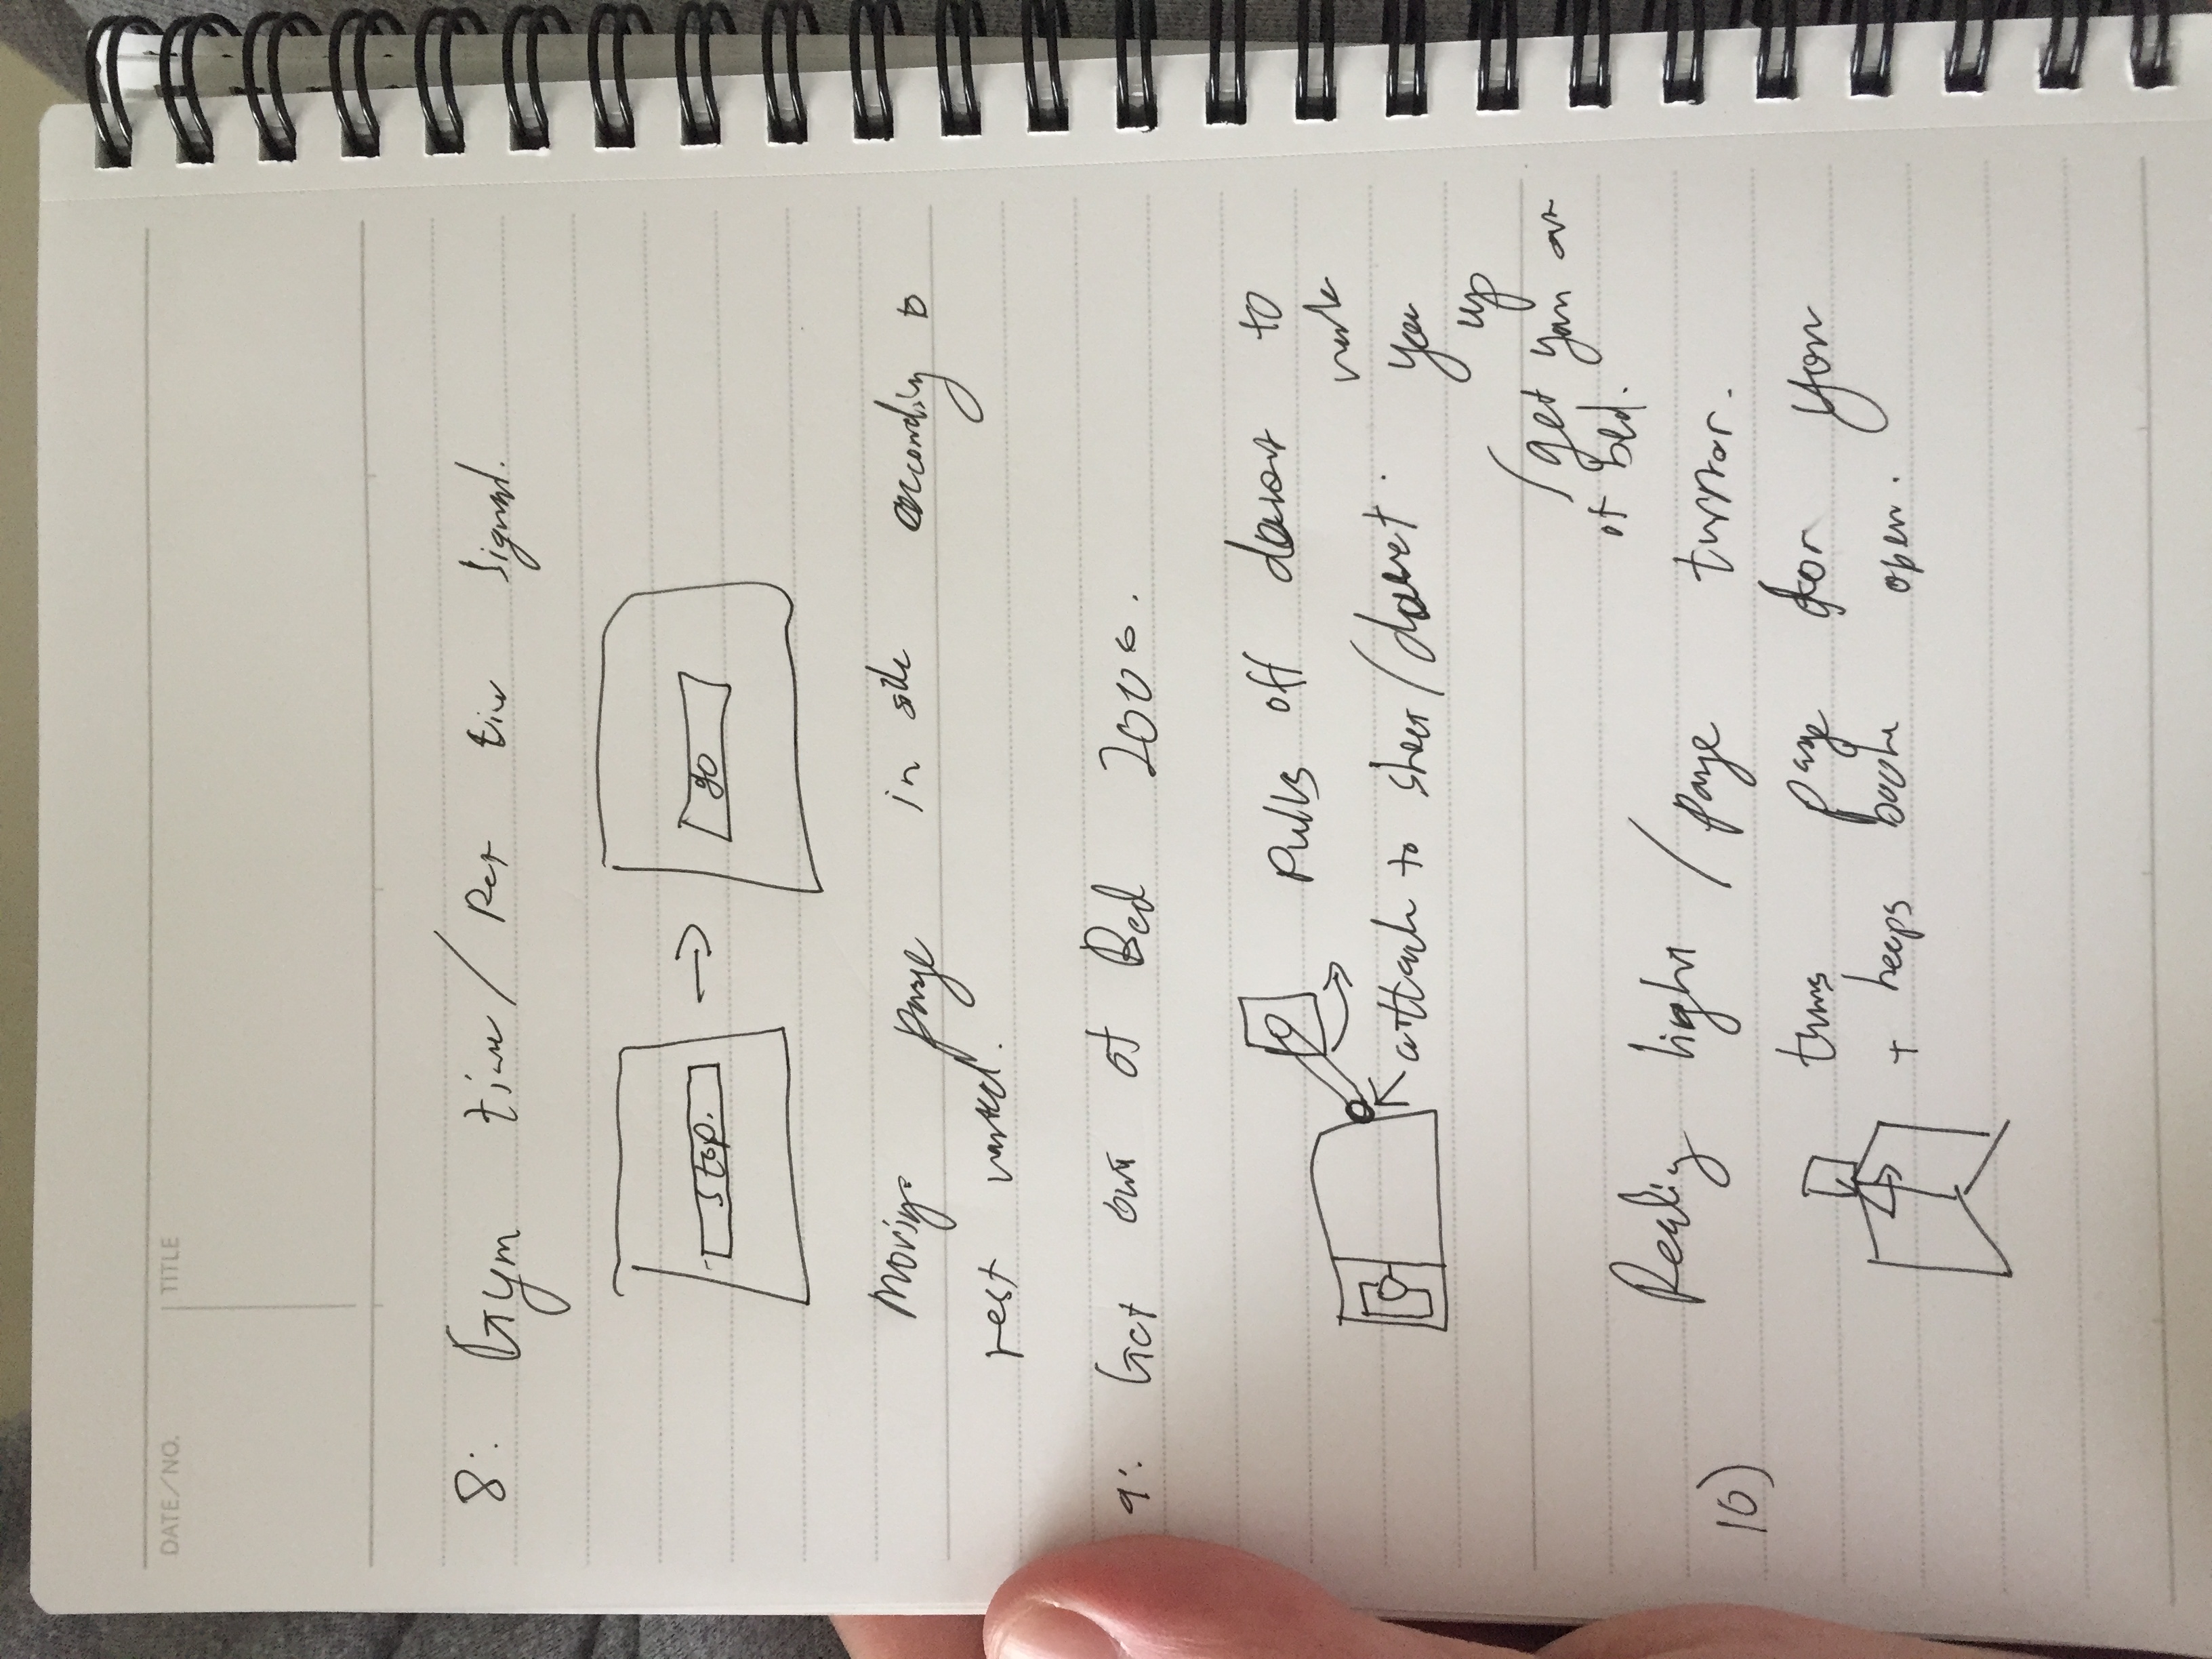 DATE/NO. TITLE
8: Gym time/Rest time signal.
stop. → go
Moving page in side according to
rest wanted.
9: Get out of Bed 2000.
Pulls off dovet to
wake
attach to sheet/dovet.
you
up
/get you out
of bed.
10) Reading light / page turner.
turns page for you
+ keeps book open.